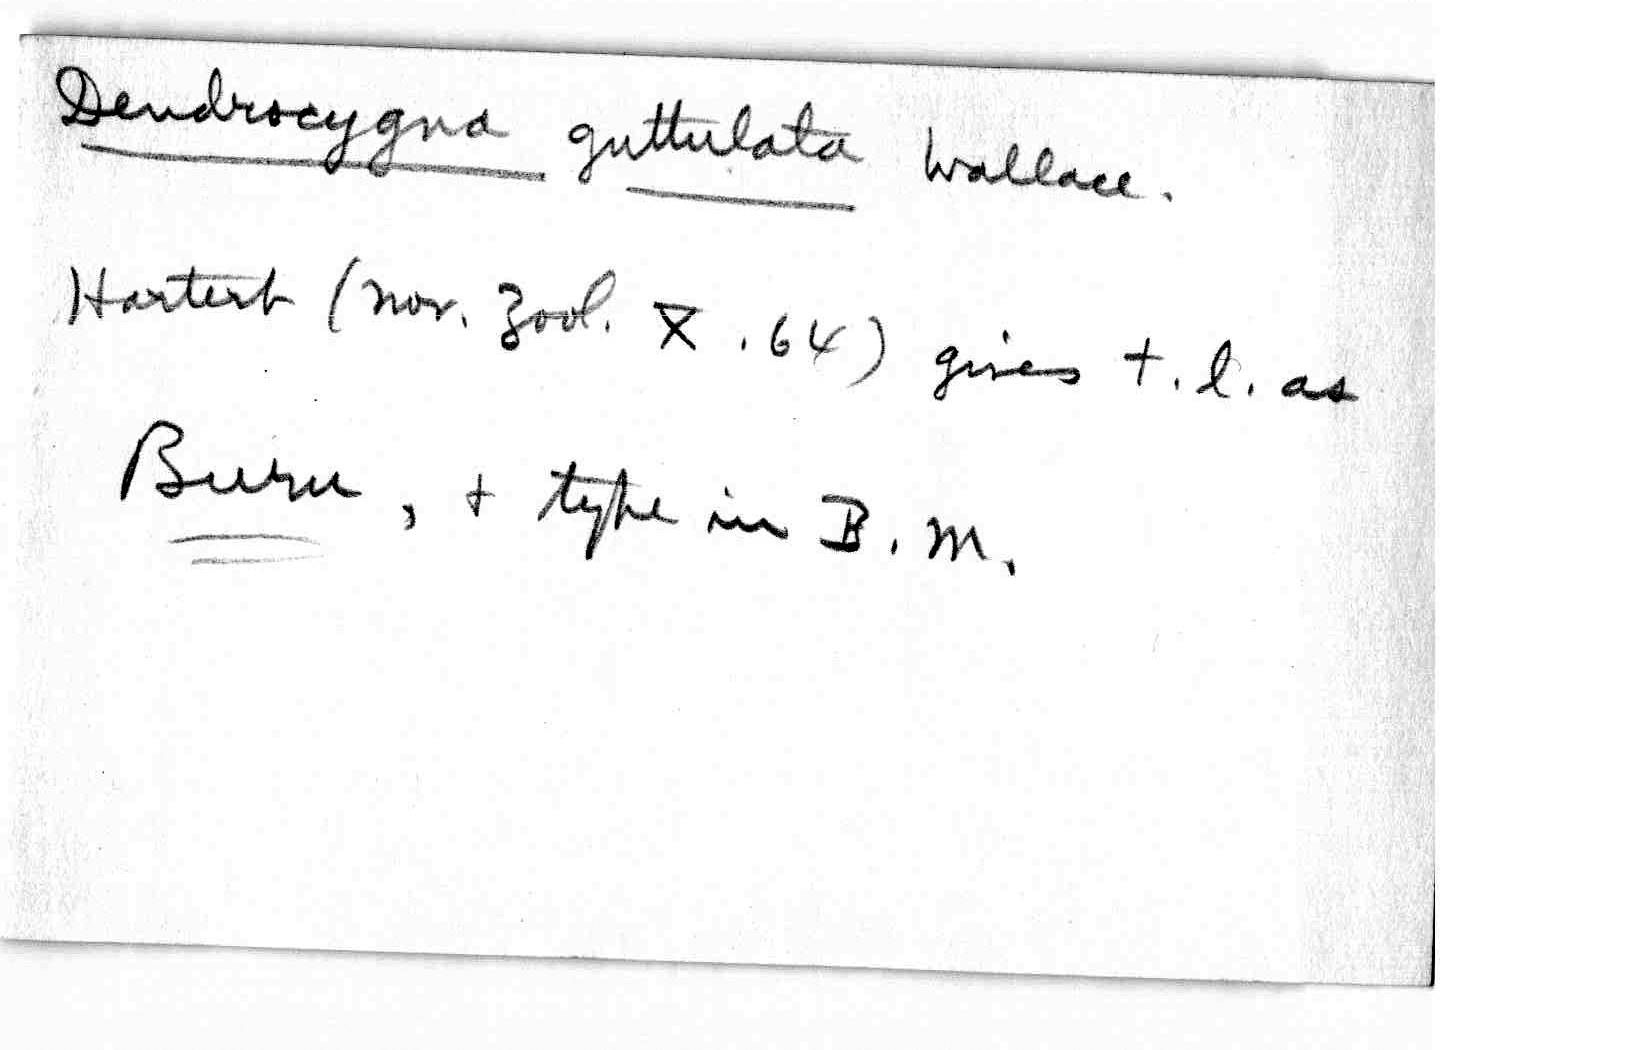 Dendrocygna guttulata Wallace.
Hartert (Nov. Zool. X. 64) gives t. l. as
Buru, + type in B. M.